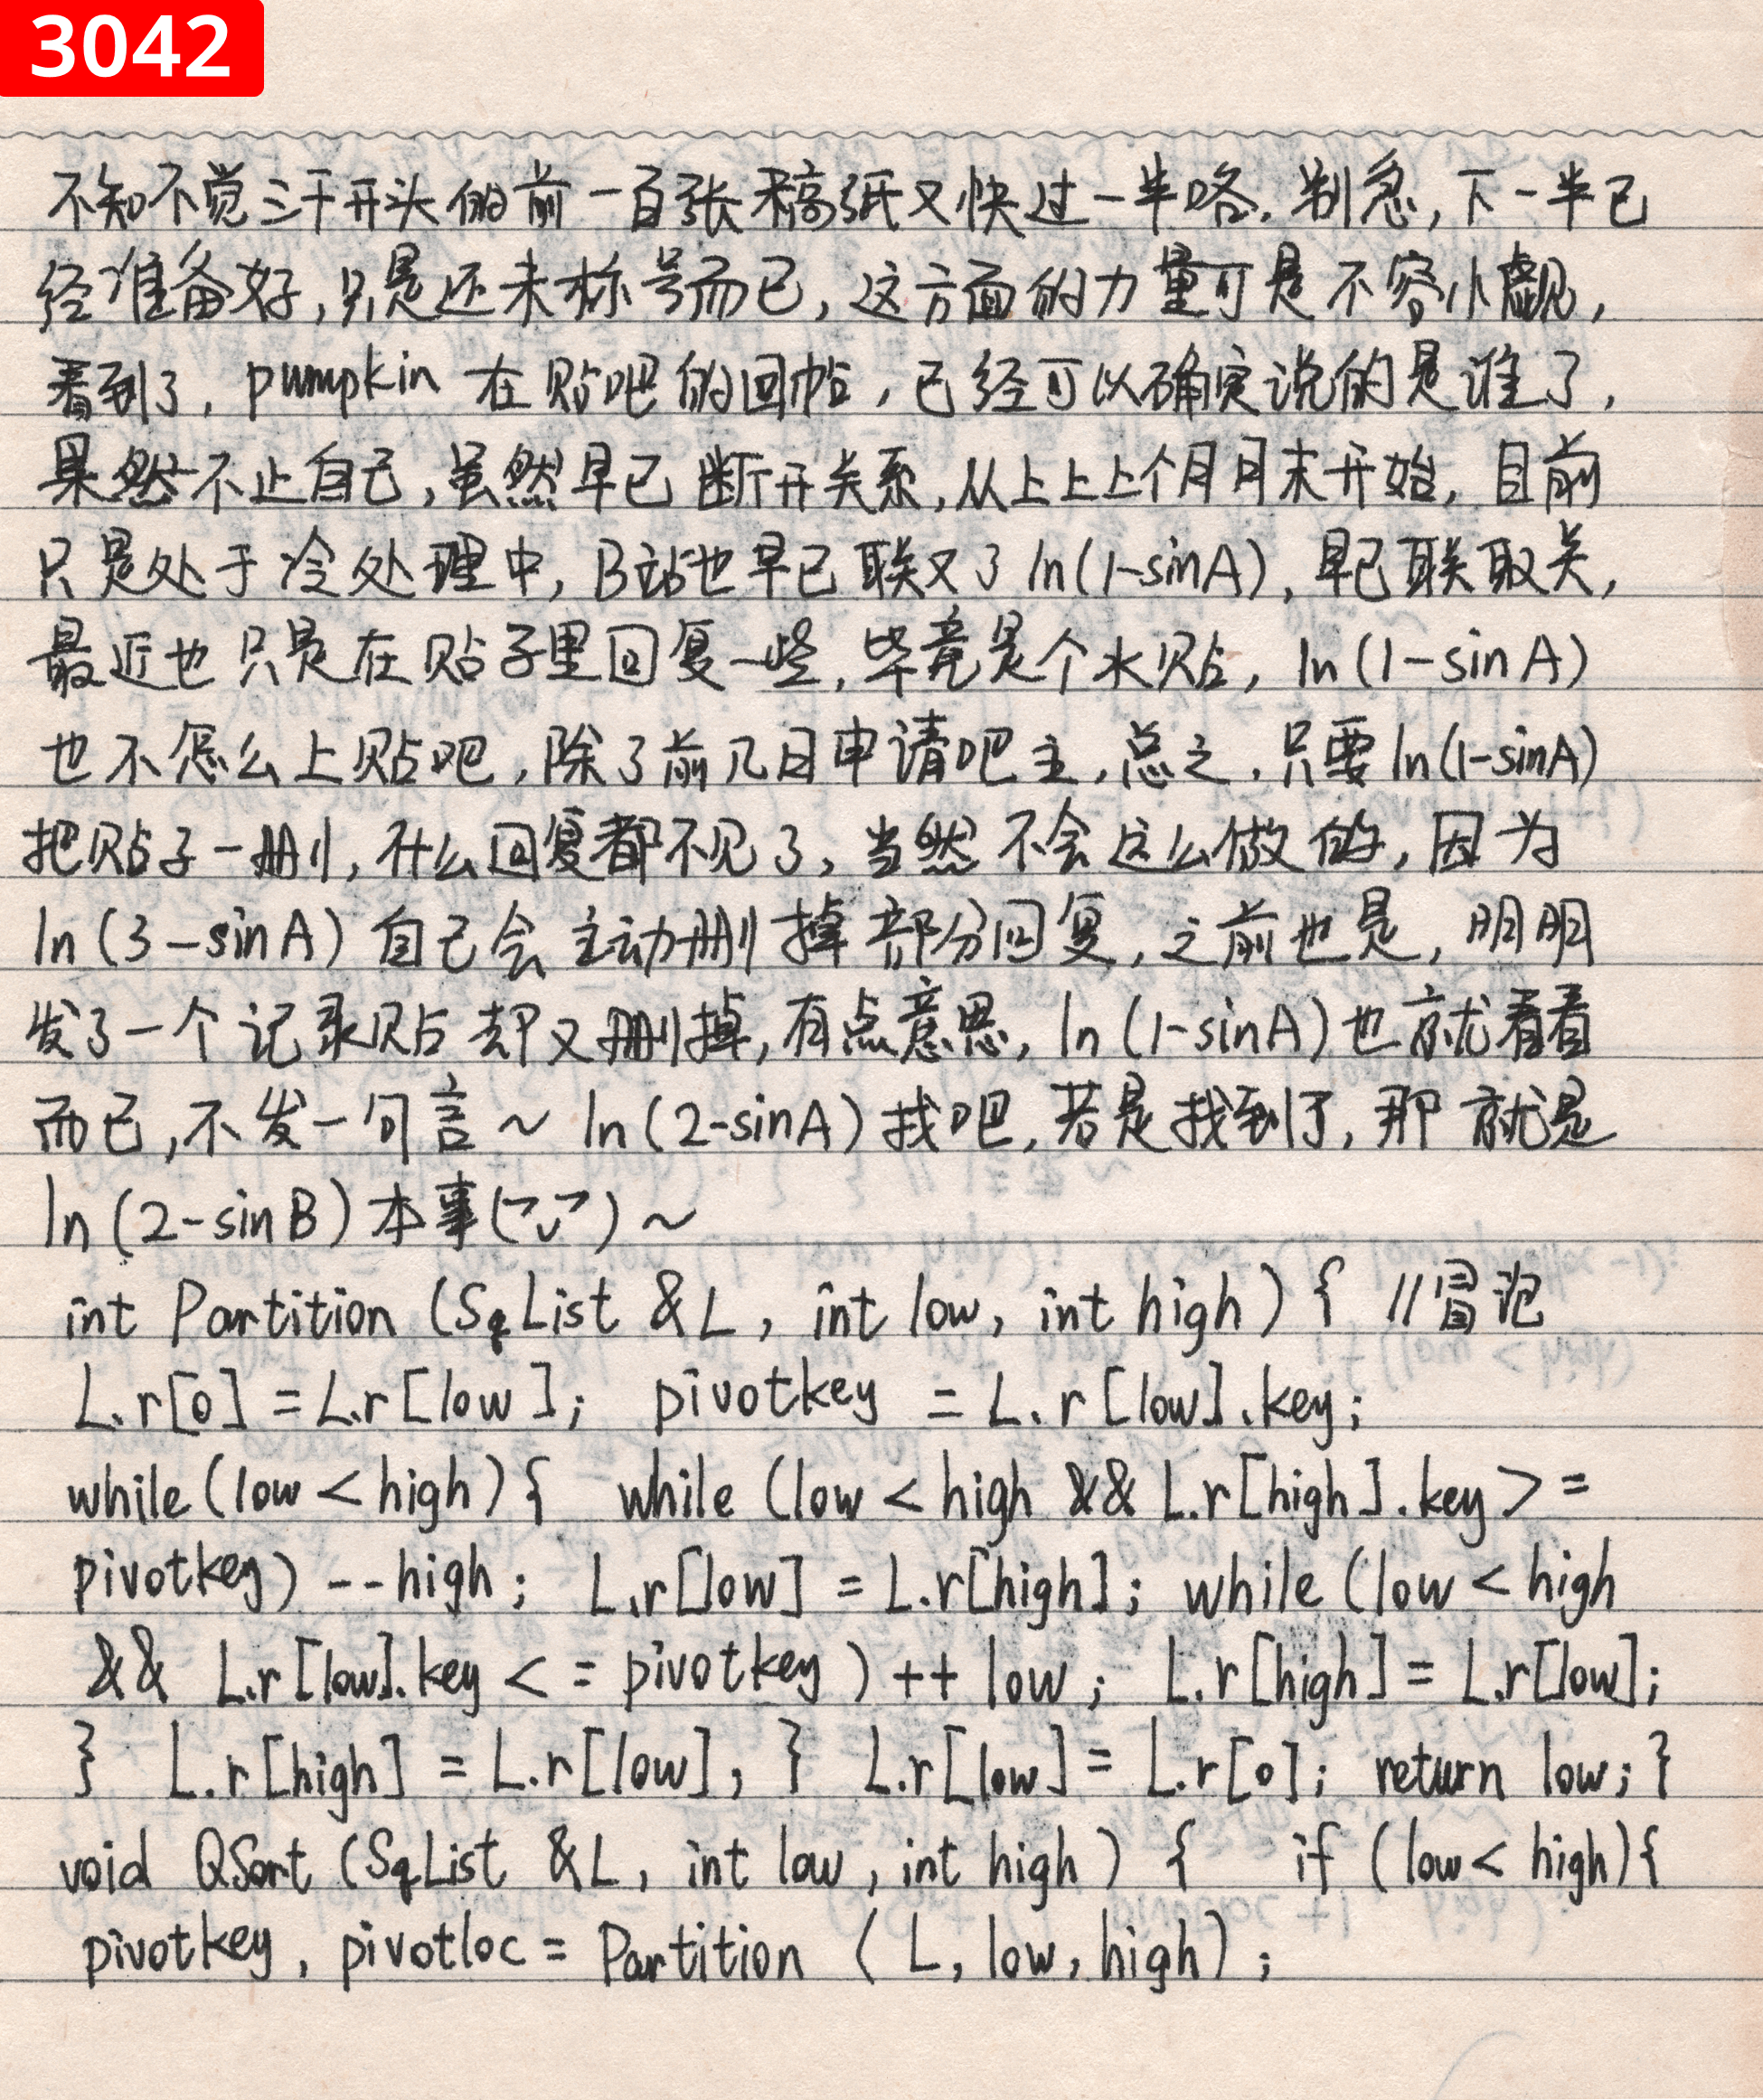 3042
不知不觉三千开头的前一百张稿纸又快过一半咯.别急,下一半已
经准备好,只是还未标号而已,这方面的力量可是不容小觑,
看到了,pumpkin 在贴吧的回帖,已经可以确定说的是谁了,
果然不止自己,虽然早已断开关系,从上上上个月月末开始,目前
只是处于冷处理中,B站也早已取关了ln(1-sinA),早已取关,
最近也只是在贴子里回复一些,毕竟是个水贴,ln(1-sinA)
也不怎么上贴吧,除了前几日申请吧主,总之,只要ln(1-sinA)
把贴子一删,什么回复都不见了,当然不会这么做的,因为
ln(3-sinA)自己会主动删掉部分回复,之前也是,明明
发了一个记录贴却又删掉,有点意思,ln(1-sinA)也就看看
而已,不发一句言~ ln(2-sinA)找吧,若是找到了,那就是
ln(2-sinB)本事(¬v¬)~
int Partition (SqList &L, int low, int high) { //冒泡
L.r[0]=L.r[low]; pivotkey = L.r[low].key;
while(low<high){ while (low<high && L.r[high].key>=
pivotkey) --high; L.r[low] = L.r[high]; while(low<high
&& L.r[low].key<=pivotkey)++low; L.r[high]=L.r[low];
} L.r[high]=L.r[low]; } L.r[low]=L.r[0]; return low;}
void QSort (SqList &L, int low, int high) { if (low<high){
pivotkey, pivotloc=Partition (L, low, high);